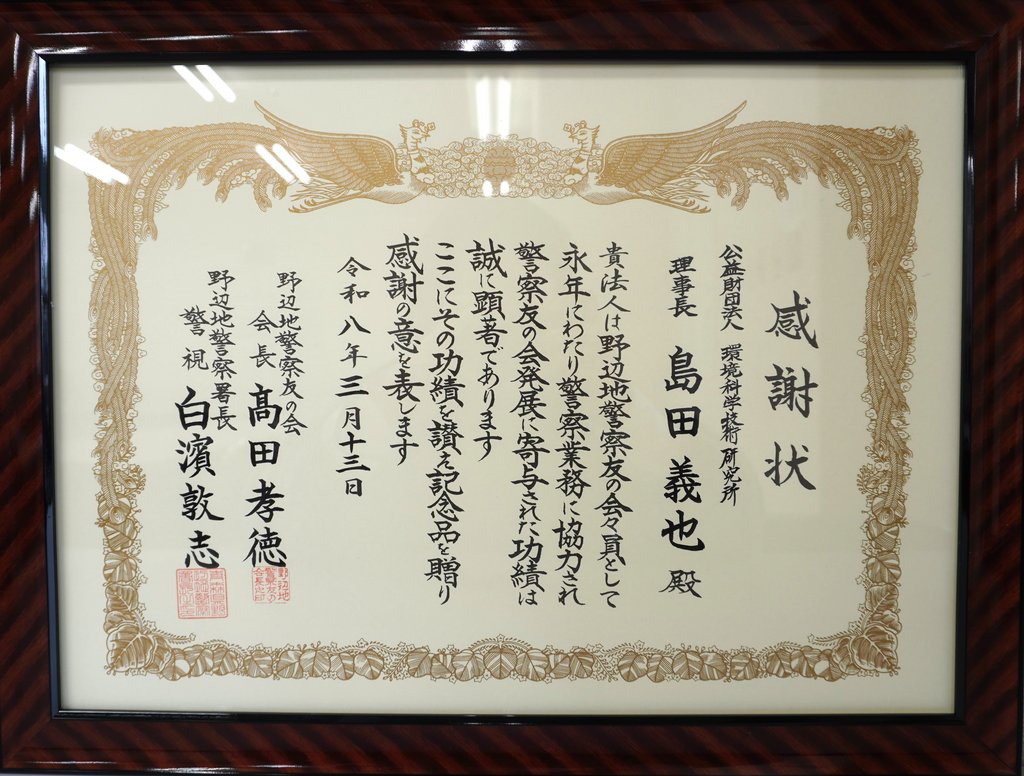 感謝状
公益財団法人 環境科学技術研究所
理事長 島田義也 殿
貴法人は野辺地警察友の会々員として
永年にわたり警察業務に協力され
警察友の会発展に寄与された功績は
誠に顕著であります
ここにその功績を讃え記念品を贈り
感謝の意を表します
令和八年三月十三日
野辺地警察友の会
会長 髙田孝徳
野辺地警察署長
警視 白濱敦志